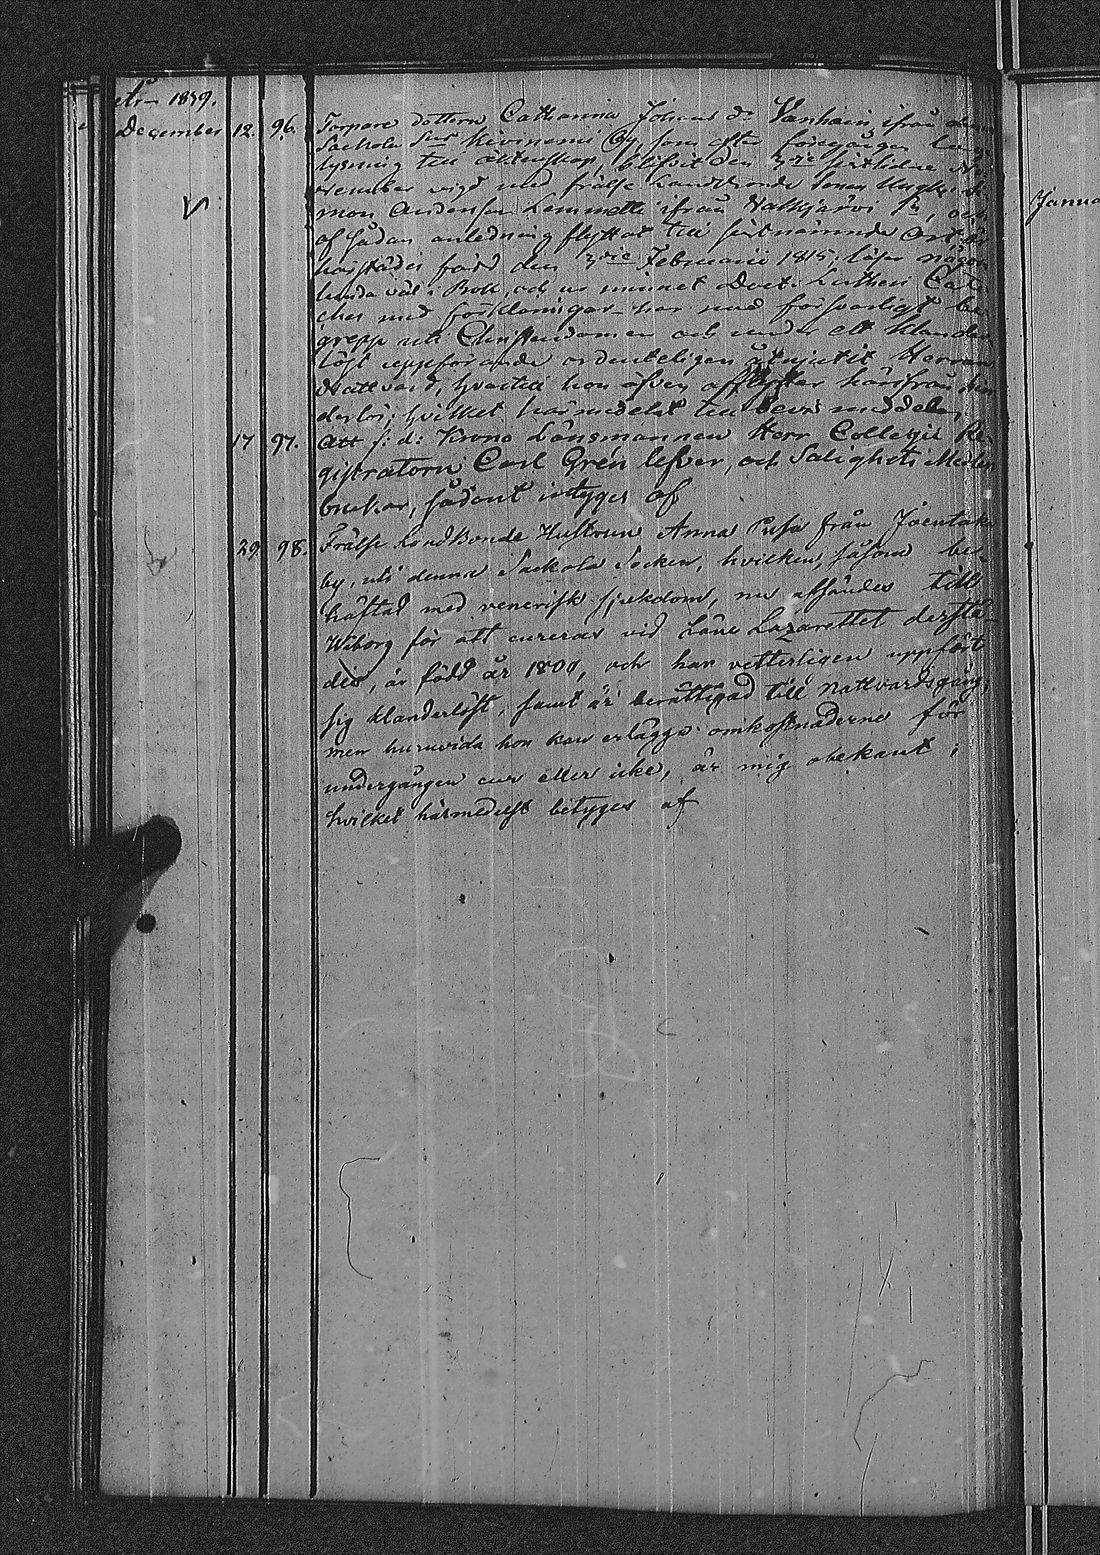 År 1839.
December 12. 96. Torpare dottern Catharina Johans dr Vanhain ifrån denna
Sackola Sns Kiwinemi By, som efter föregången
lysning till äktenskap, blifvit den 3die sistledne No-
vember vigd med frälse Landtbonde Sonen Si-
mon Andersson Lemmetti ifrån Walkjärvi Sn, och
af sådan anledning flyttat till sistnämnde Ort, är
härstädes född den 3die Februarii 1815, läser någor-
lunda väl i Bok, och ur minnet Doct. Lutheri Cate-
ches med förklaringar har med försvarligt be-
grepp uti Christendomen och under ett klander-
löst uppförande ordenteligen åtnjutit Herrans
Nattvard, hvartill hon äfven afflyttar härifrån hin-
derlös; hvilket härmedelst till bevis meddelas
17 97. Att f: d: Krono Länsmannen Herr Collegii Re-
gistratorn Carl Grén lefver, och Salighets Medlen
brukar, sådant intygges af
29. 98. Frälse Landtbonde Hustrun Anna Pusa från Joentaka
by, uti denna Sackola Socken, hvilken, såsom be-
häftad med venerisk sjukdom, nu afsändes till
Wiborg för att cureras vid Läne Lazarettet derstä-
des, är född år 1800, och har vetterligen uppfört
sig klanderlöst, samt är berättigad till nattvardsgång;
men huruvida hon kan erlägga omkostnaderne för
undergången cur eller icke, är mig obekant;
hvilket härmedelst betyges af
Janua